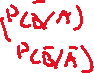 P(B̅/A)
P(B̅/A̅)